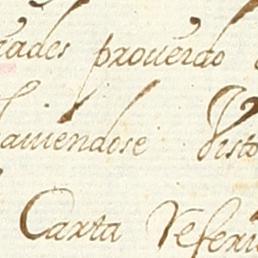 rades prouerdo
hauiendose Visto
Carta Referi